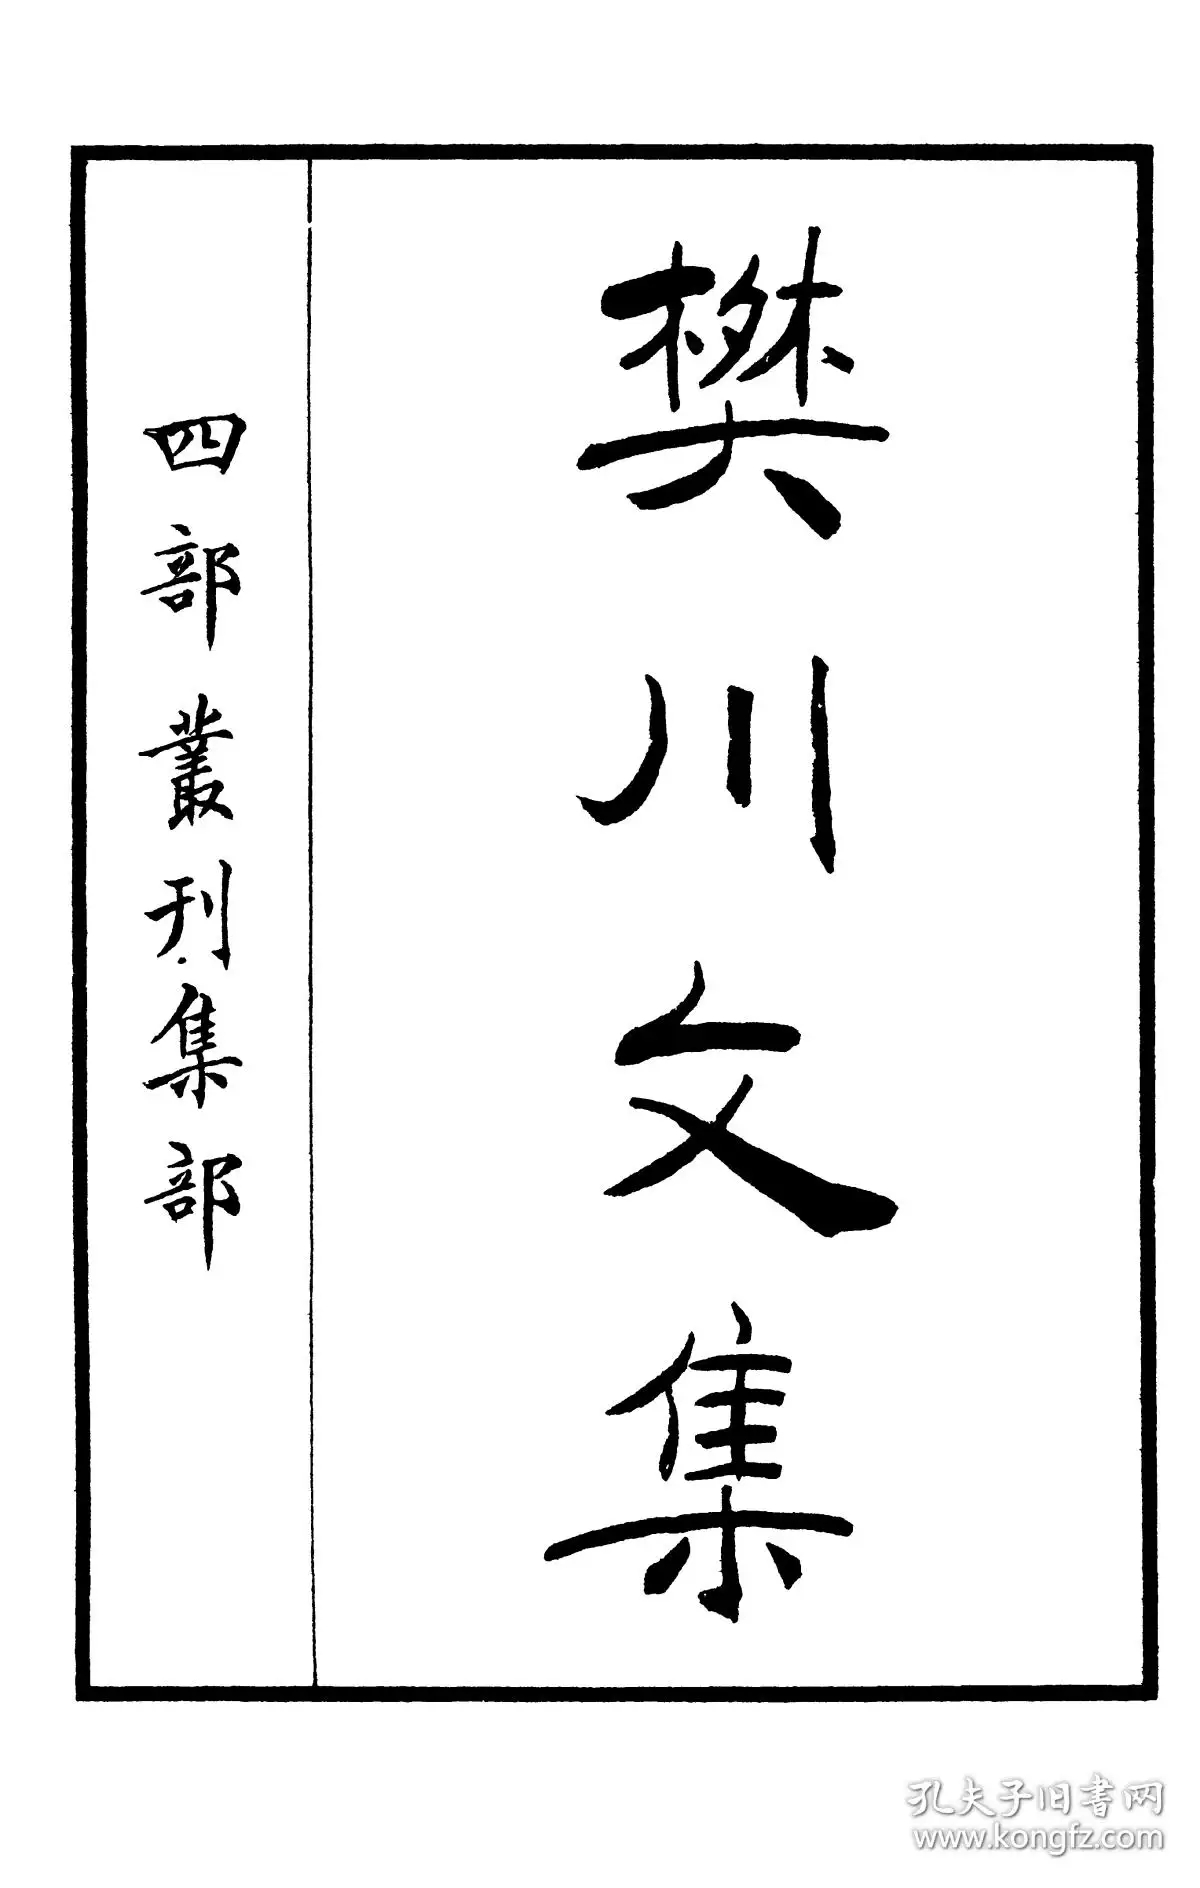 樊川文集
四部叢刊集部
孔夫子旧書网
www.kongfz.com